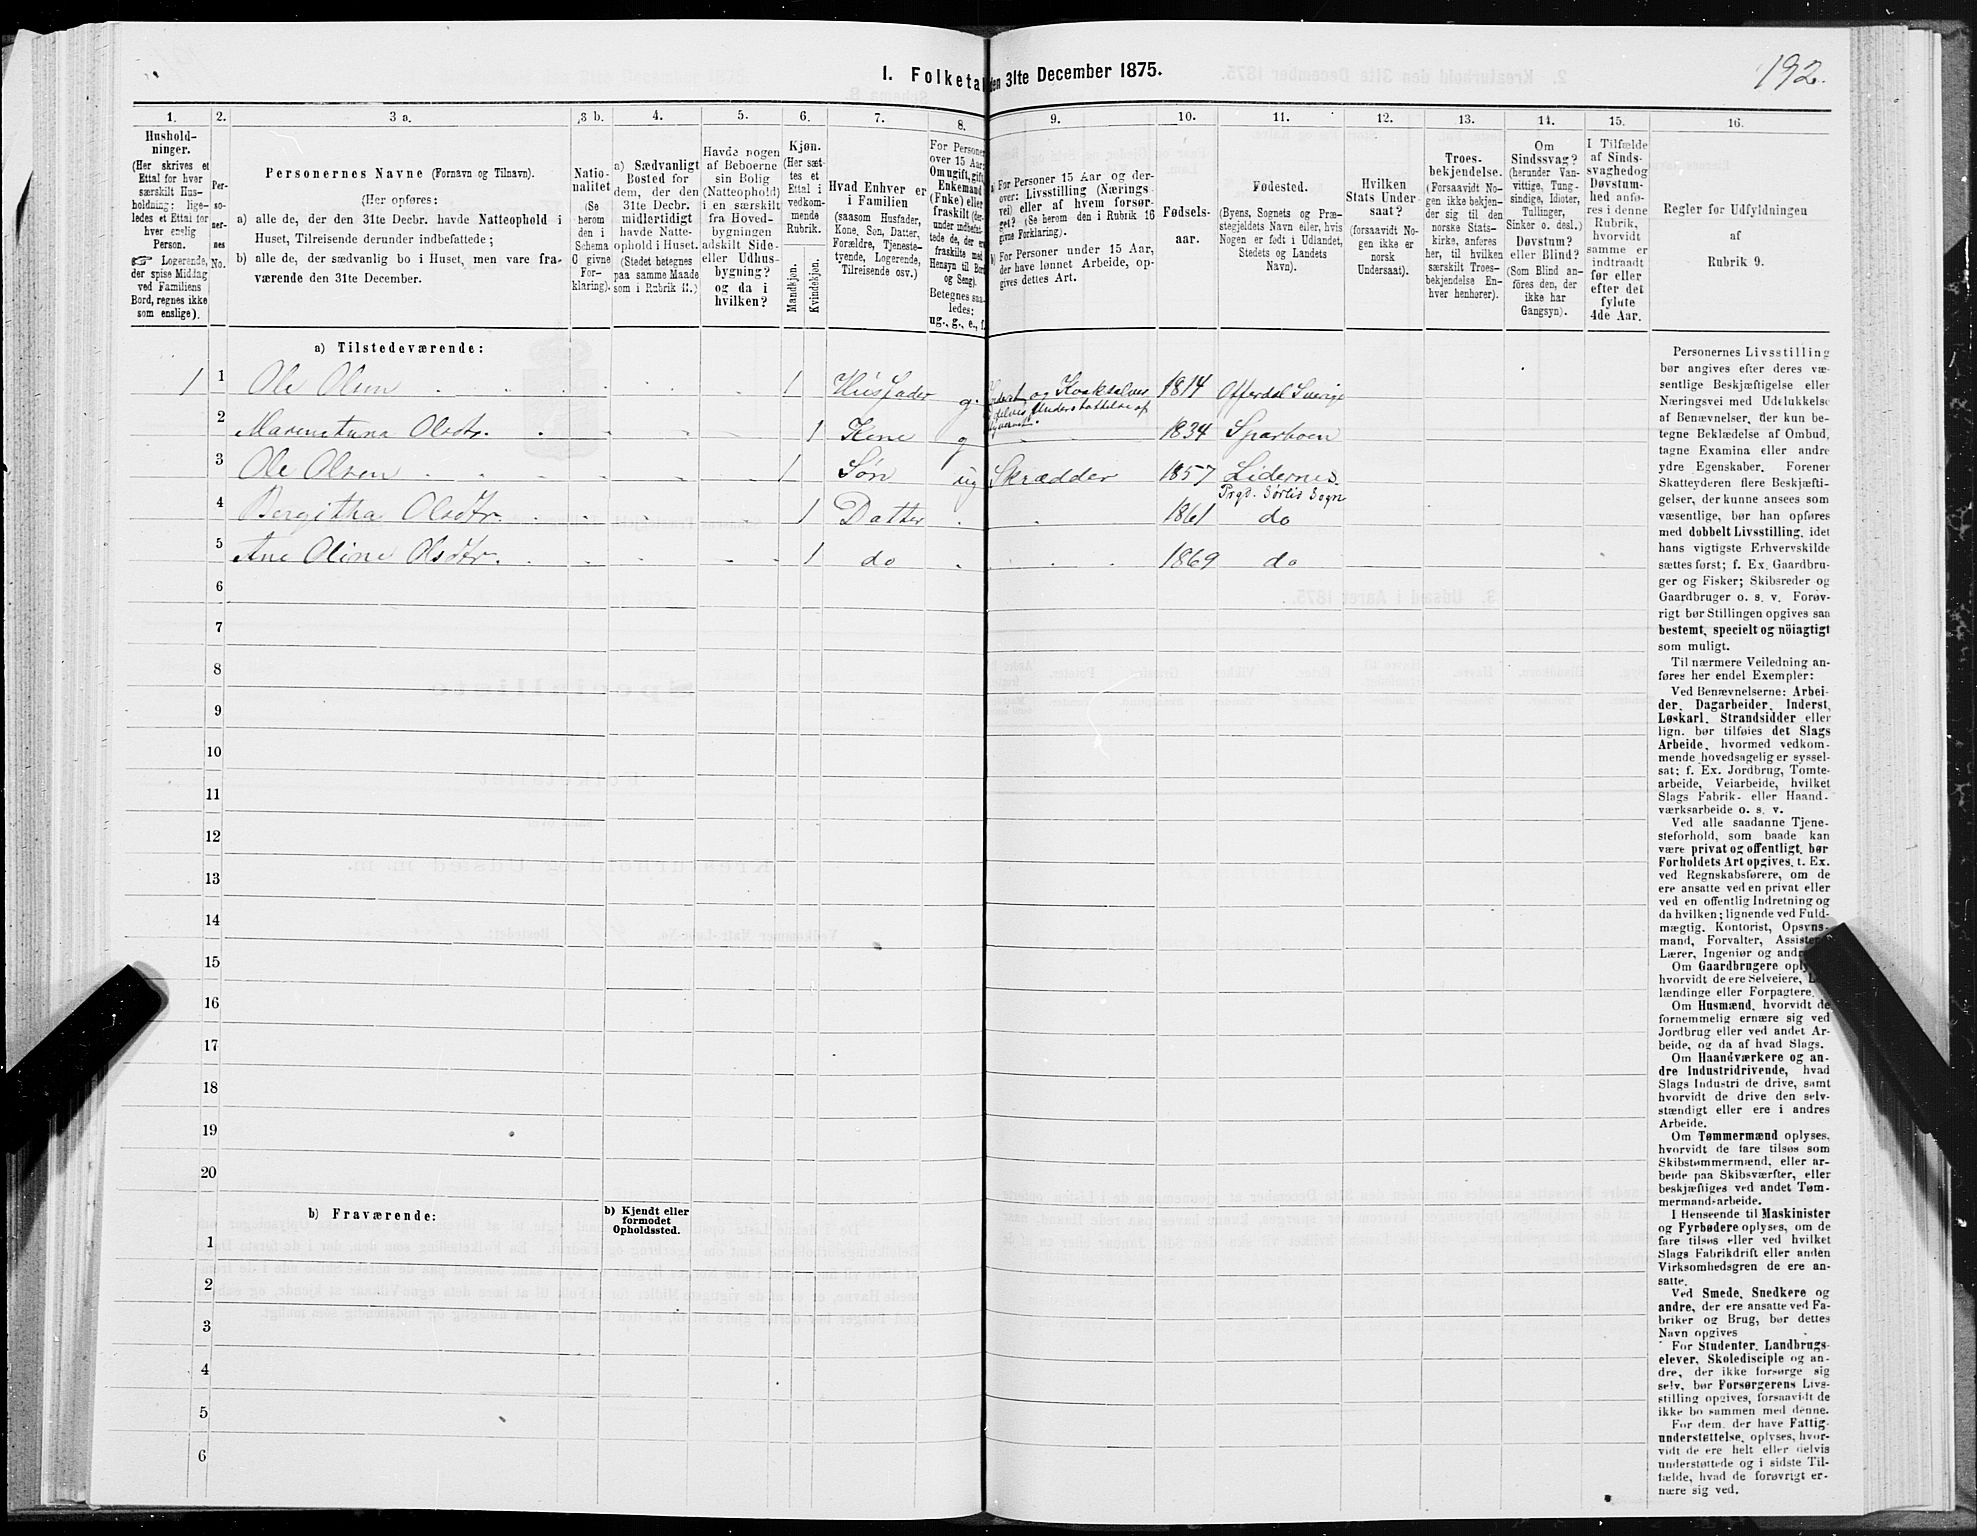 192.
I. Folketal den 31te December 1875.
1. 2. 3 a. 3 b. 4. 5. 6. 7. 8. 9. 10. 11. 12. 13. 14. 15. 16.
Hushold-
ninger.
(Her skrives et
Ettal for hver
særskilt Hus-
holdning; lige-
ledes et Ettal for
hver enslig
Person.
☞ Logerende,
der spise Middag
ved Familiens
Bord, regnes ikke
som enslige).
Per-
so-
ner-
nes
No.
Personernes Navne (Fornavn og Tilnavn).
(Her opføres:
a) alle de, der den 31te Decbr. havde Natteophold i
Huset, Tilreisende derunder indbefattede;
b) alle de, der sædvanlig bo i Huset, men vare fra-
værende den 31te December.
Natio-
nalitet
(Se
herom
den i
Schema
G givne
For-
klaring).
a) Sædvanligt
Bosted for
dem, der den
31te Decbr.
midlertidigt
havde Natte-
ophold i Huset.
(Stedet betegnes
paa samme Maade
som i Rubrik 11.)
Havde nogen
af Beboerne
sin Bolig
(Natteophold)
i en særskilt
fra Hoved-
bygningen
adskilt Side-
eller Udhus-
bygning?
og da i
hvilken?
Kjøn.
(Her sæt-
tes et
Ettal i
vedkom-
mende
Rubrik.
Mandkjøn.
Kvindekjøn.
Hvad Enhver er
i Familien
(saasom Husfader,
Kone, Søn, Datter,
Forældre, Tjeneste-
tyende, Logerende,
Tilreisende osv.)
For Personer
over 15 Aar:
Om ugift, gift,
Enkemand
(Enke) eller
fraskilt (der-
under indbefat-
tede de, der er
fraskilte med
Hensyn til Bord
og Seng).
Betegnes saa-
ledes:
ug., g., e., f.
a) For Personer 15 Aar og der-
over: Livsstilling (Nærings-
vei) eller af hvem forsør-
get? (Se herom den i Rubrik 16
givne Forklaring).
b) For Personer under 15 Aar,
der have lønnet Arbeide, op-
gives dettes Art.
Fødsels-
aar.
Fødested.
(Byens, Sognets og Præ-
stegjeldets Navn eller, hvis
Nogen er født i Udlandet,
Stedets og Landets
Navn).
Hvilken
Stats Under-
saat?
(forsaavidt No-
gen ikke er
norsk
Undersaat).
Troes-
bekjendelse.
(Forsaavidt No-
gen ikke bekjen-
der sig til den
norske Stats-
kirke, anføres
her, til hvilken
særskilt Troes-
bekjendelse En-
hver henhører).
Om
Sindssvag?
(herunder Van-
vittige, Tung-
sindige, Idioter,
Tullinger,
Sinker o. desl.)
Døvstum?
eller Blind?
(Som Blind an-
föres den, der
ikke har
Gangsyn).
I Tilfælde
af Sinds-
svaghed og
Døvstum-
hed anfø-
res i denne
Rubrik,
hvorvidt
samme er
indtraadt
før eller
efter det
fylute
4de Aar.
Regler for Udfyldningen
af
Rubrik 9.
a) Tilstedeværende:
1 1 Ole Olsen 1 Husfader g. og Kvaksalver 1814 Offerdal Sverige
delvis Understøttelse af
2 Marenstina Olsdtr. 1 Kone g 1834 Sparboen
3 Ole Olsen 1 Søn ug Skrædder 1857 Lidernes
Prgd. Sørlis Sogn
4 Bergitha Olsdtr. 1 Datter 1861 do
5 Ane Oline Olsdtr. 1 do 1869 do
6
7
8
9
10
11
12
13
14
15
16
17
18
19
20
b) Fraværende:
b) Kjendt eller
formodet
Opholdssted.
1
2
3
4
5
6
Personernes Livsstilling
bør angives efter deres væ-
sentlige Beskjæftigelse eller
Næringsvei med Udelukkelse
af Benævnelser, der kun be-
tegne Beklædelse af Ombud,
tagne Examina eller andre
ydre Egenskaber. Forener
Skatteyderen flere Beskjæfti-
gelser, der kunne ansees som
væsentlige, bør han opføres
med dobbelt Livsstilling, idet
hans vigtigste Erhvervskilde
sættes først; f. Ex. Gaardbru-
ger og Fisker; Skibsreder og
Gaardbruger o. s. v. Forøv-
rigt bør Stillingen opgives saa
bestemt, specielt og nöiagtigt
som muligt.
Til nærmere Veiledning an-
føres her endel Exempler:
Ved Benævnelserne: Arbei-
der, Dagarbeider, Inderst,
Løskarl, Strandsidder eller
lign. bør tilføies det Slags
Arbeide, hvormed vedkom-
mende hovedsagelig er syssel-
sat; f. Ex. Jordbrug, Tomte-
arbeide, Veiarbeide, hvilket
Slags Fabrik- eller Haand-
værksarbeide o. s. v.
Ved alle saadanne Tjene-
steforhold, som baade kan
være privat og offentligt, bør
Forholdets Art opgives, t. Ex.
ved Regnskabsførere, om de
ere ansatte ved en privat eller
ved en offentlig Indretning og
da hvilken; lignende ved Fuld-
mægtig, Kontorist, Opsyns-
mand, Forvalter, Assistent,
Lærer, Ingeniør og andre.
Om Gaardbrugere oplyses,
hvorvidt de ere Selveiere, Lei-
lændinge eller Forpagtere.
Om Husmænd, hvorvidt de
fornemmelig ernære sig ved
Jordbrug eller ved andet Ar-
beide, og da af hvad Slags.
Om Haandværkere og an-
dre Industridrivende, hvad
Slags Industri de drive, samt
hvorvidt de drive den selv-
stændigt eller ere i andres
Arbeide.
Om Tømmermænd oplyses,
hvorvidt de fare tilsøs som
Skibstømmermænd, eller ar-
beide paa Skibsværfter, eller
beskjæftiges ved andet Tøm-
mermandsarbeide.
I Henseende til Maskinister
og Fyrbødere oplyses, om de
fare tilsøs eller ved hvilket
Slags Fabrikdrift eller anden
Virksomhedsgren de ere an-
satte.
Ved Smede, Snedkere og
andre, der ere ansatte ved Fa-
briker og Brug, bør dettes
Navn opgives
For Studenter, Landbrugs-
elever, Skoledisciple og an-
dre, der ikke forsørge sig
selv, bør Forsørgerens Livs-
stilling opgives, forsaavidt de
ikke bo sammen med denne.
For dem, der have Fattig-
understøttelse, oplyses, hvor-
vidt de ere helt eller delvis
understøttede og i sidste Til-
fælde, hvad de forøvrigt er-
nære sig ved.